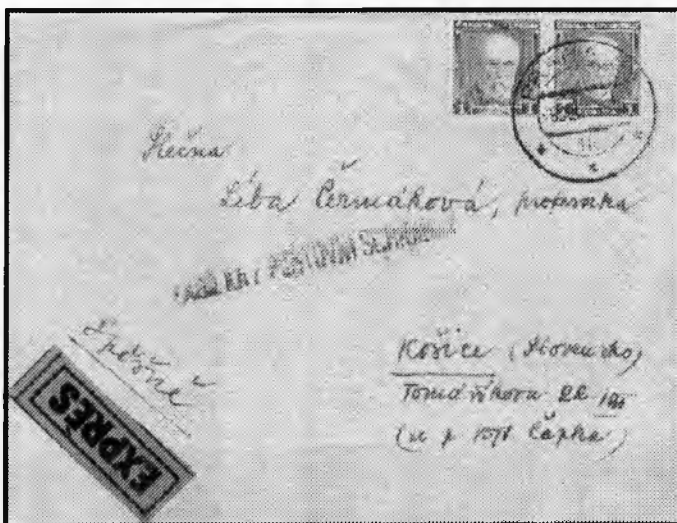 Slečna
Líba Čermáková, profesorka
POŠTOVNÍ
Spěšné
EXPRÉS
Košice (Slovensko)
Tomášikova 22
(u p. Čapka)